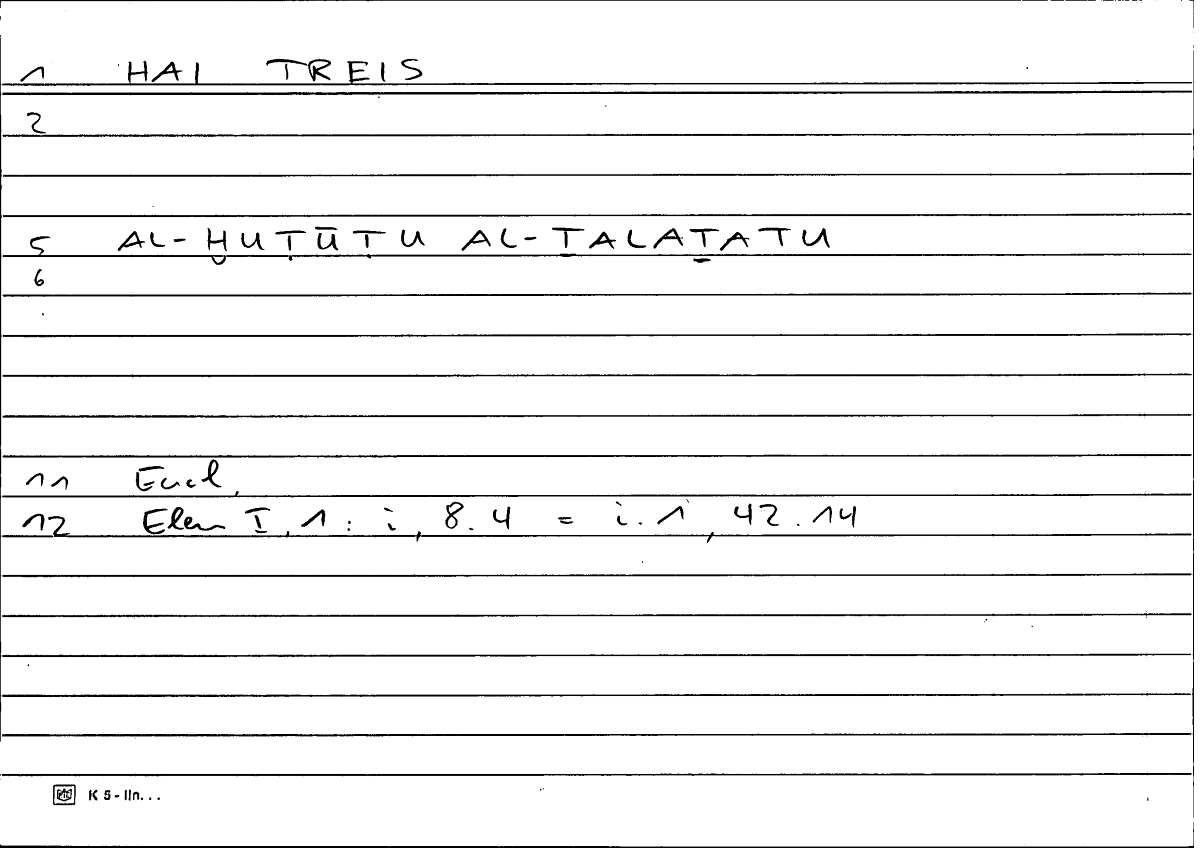 1 HAI TREIS
2
5 AL-ḪUṬŪṬU AL-ṮALAṮATU
6
11 Eucl.
12 Elem I, 1 : i, 8.4 = i.1, 42.14
K 5 - lin...